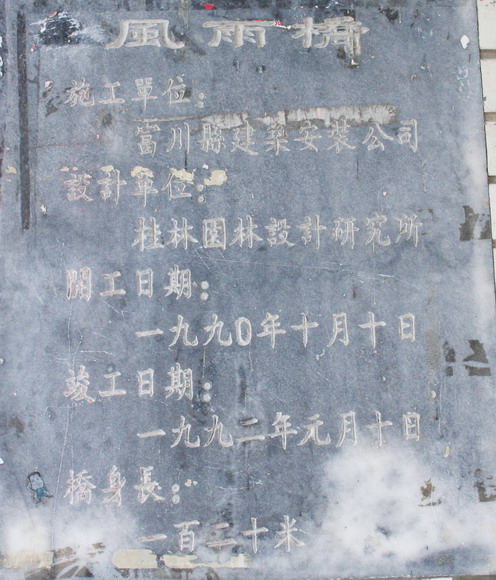 風雨橋
施工單位:
富川縣建築安裝公司
設計單位:
桂林园林設計研究所
開工日期:
一九九〇年十月十日
竣工日期:
一九九二年元月十日
橋身長:
一百二十米